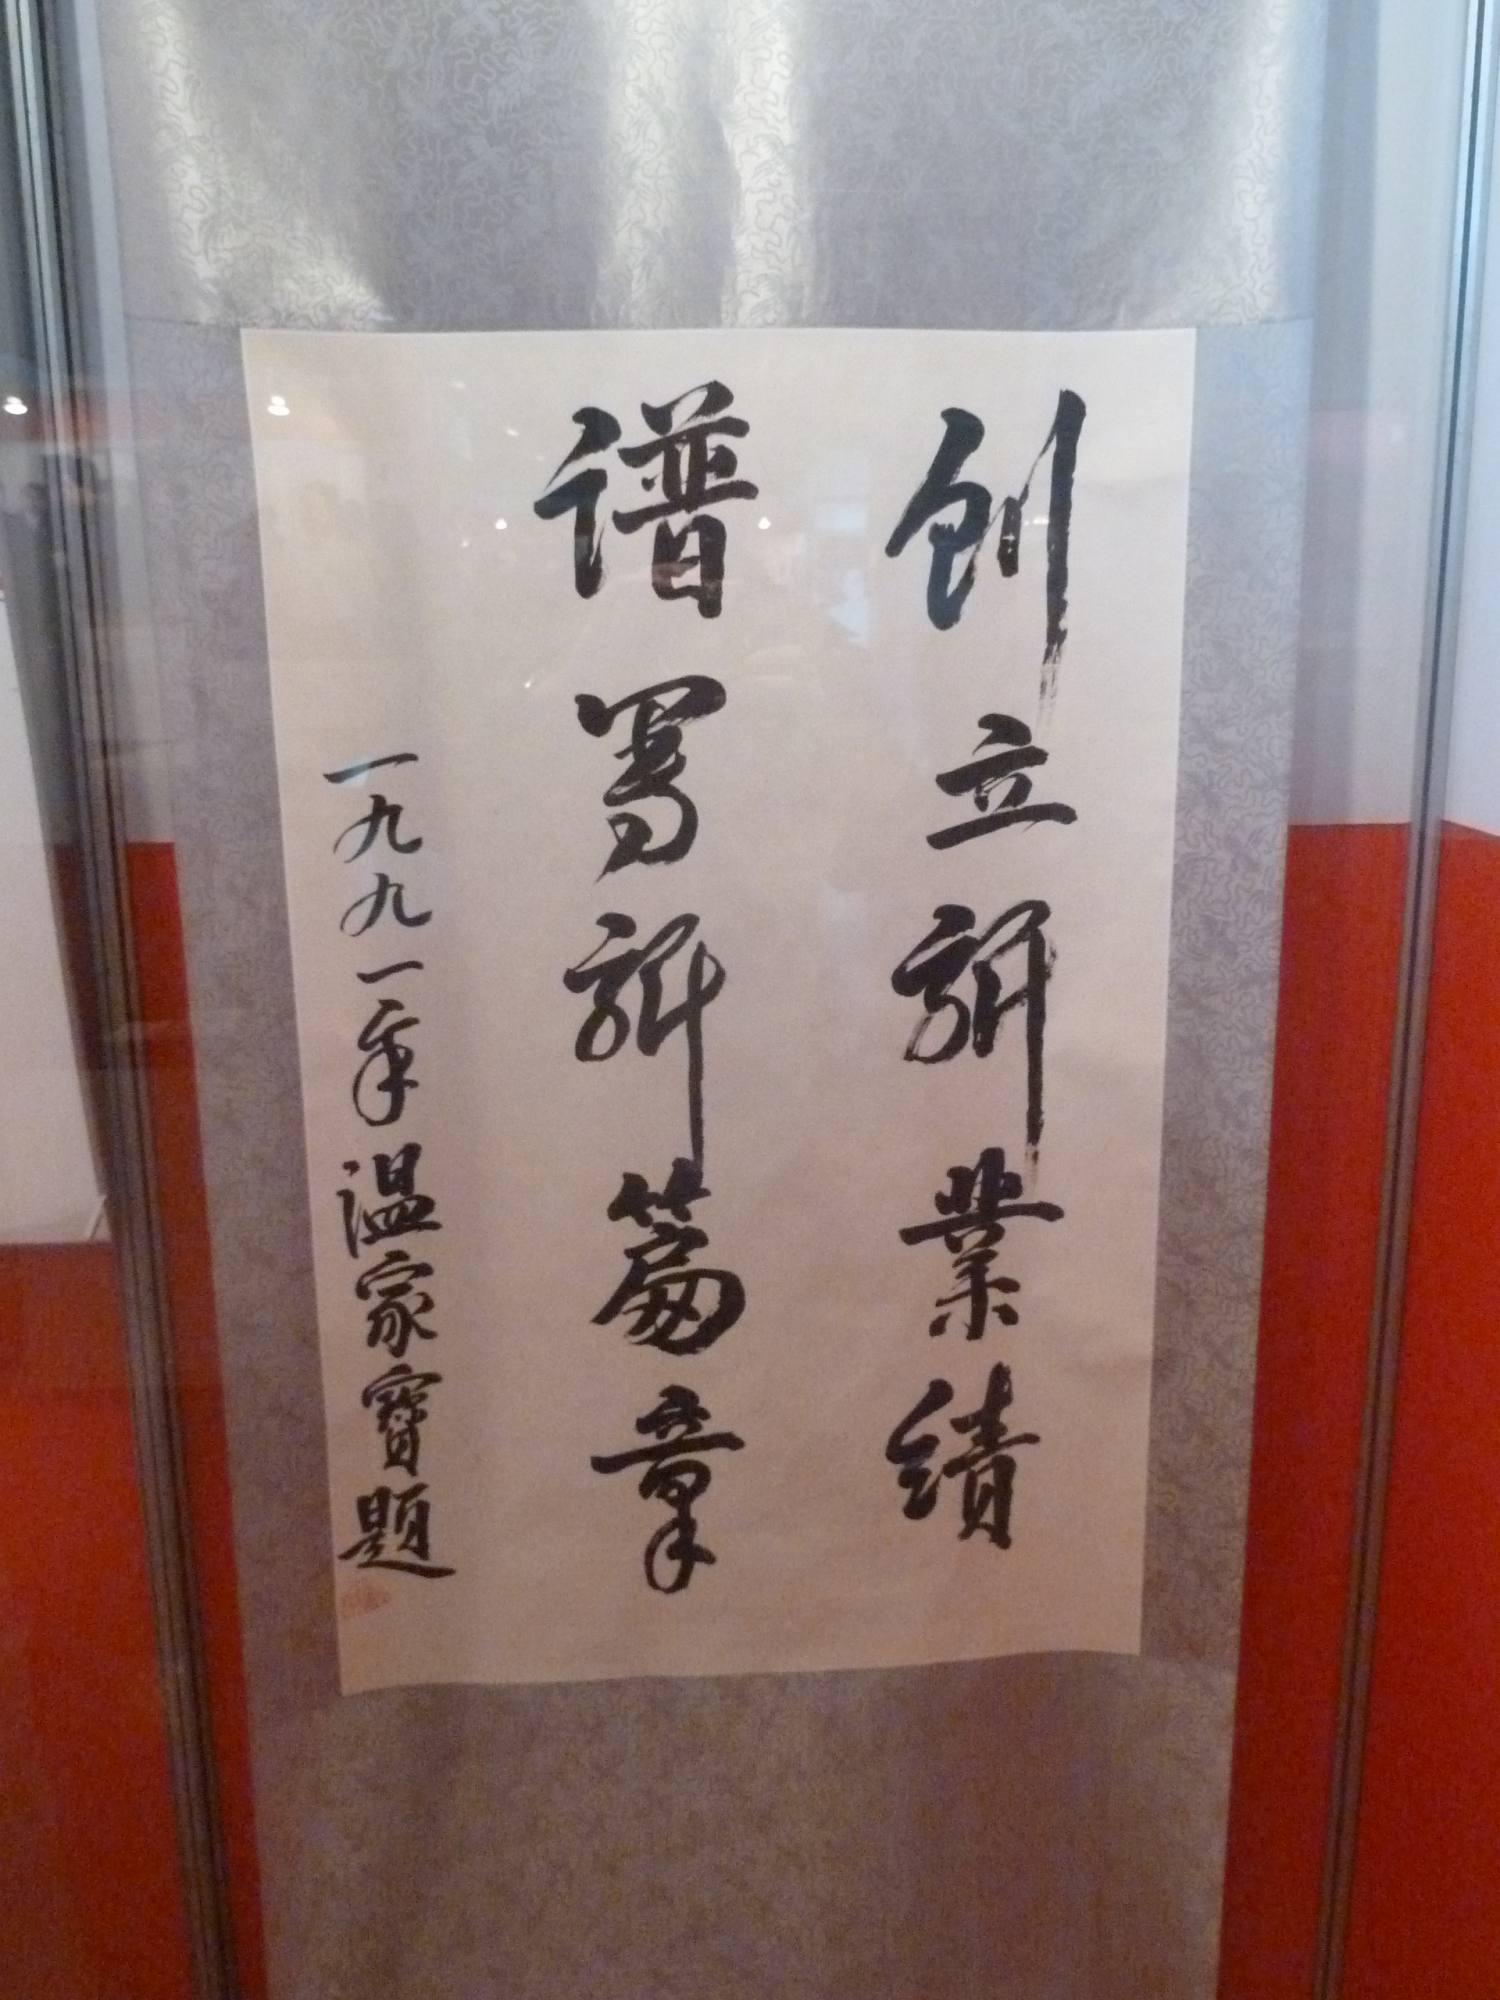 创立新業績
谱写新篇章
一九九一年温家寶題